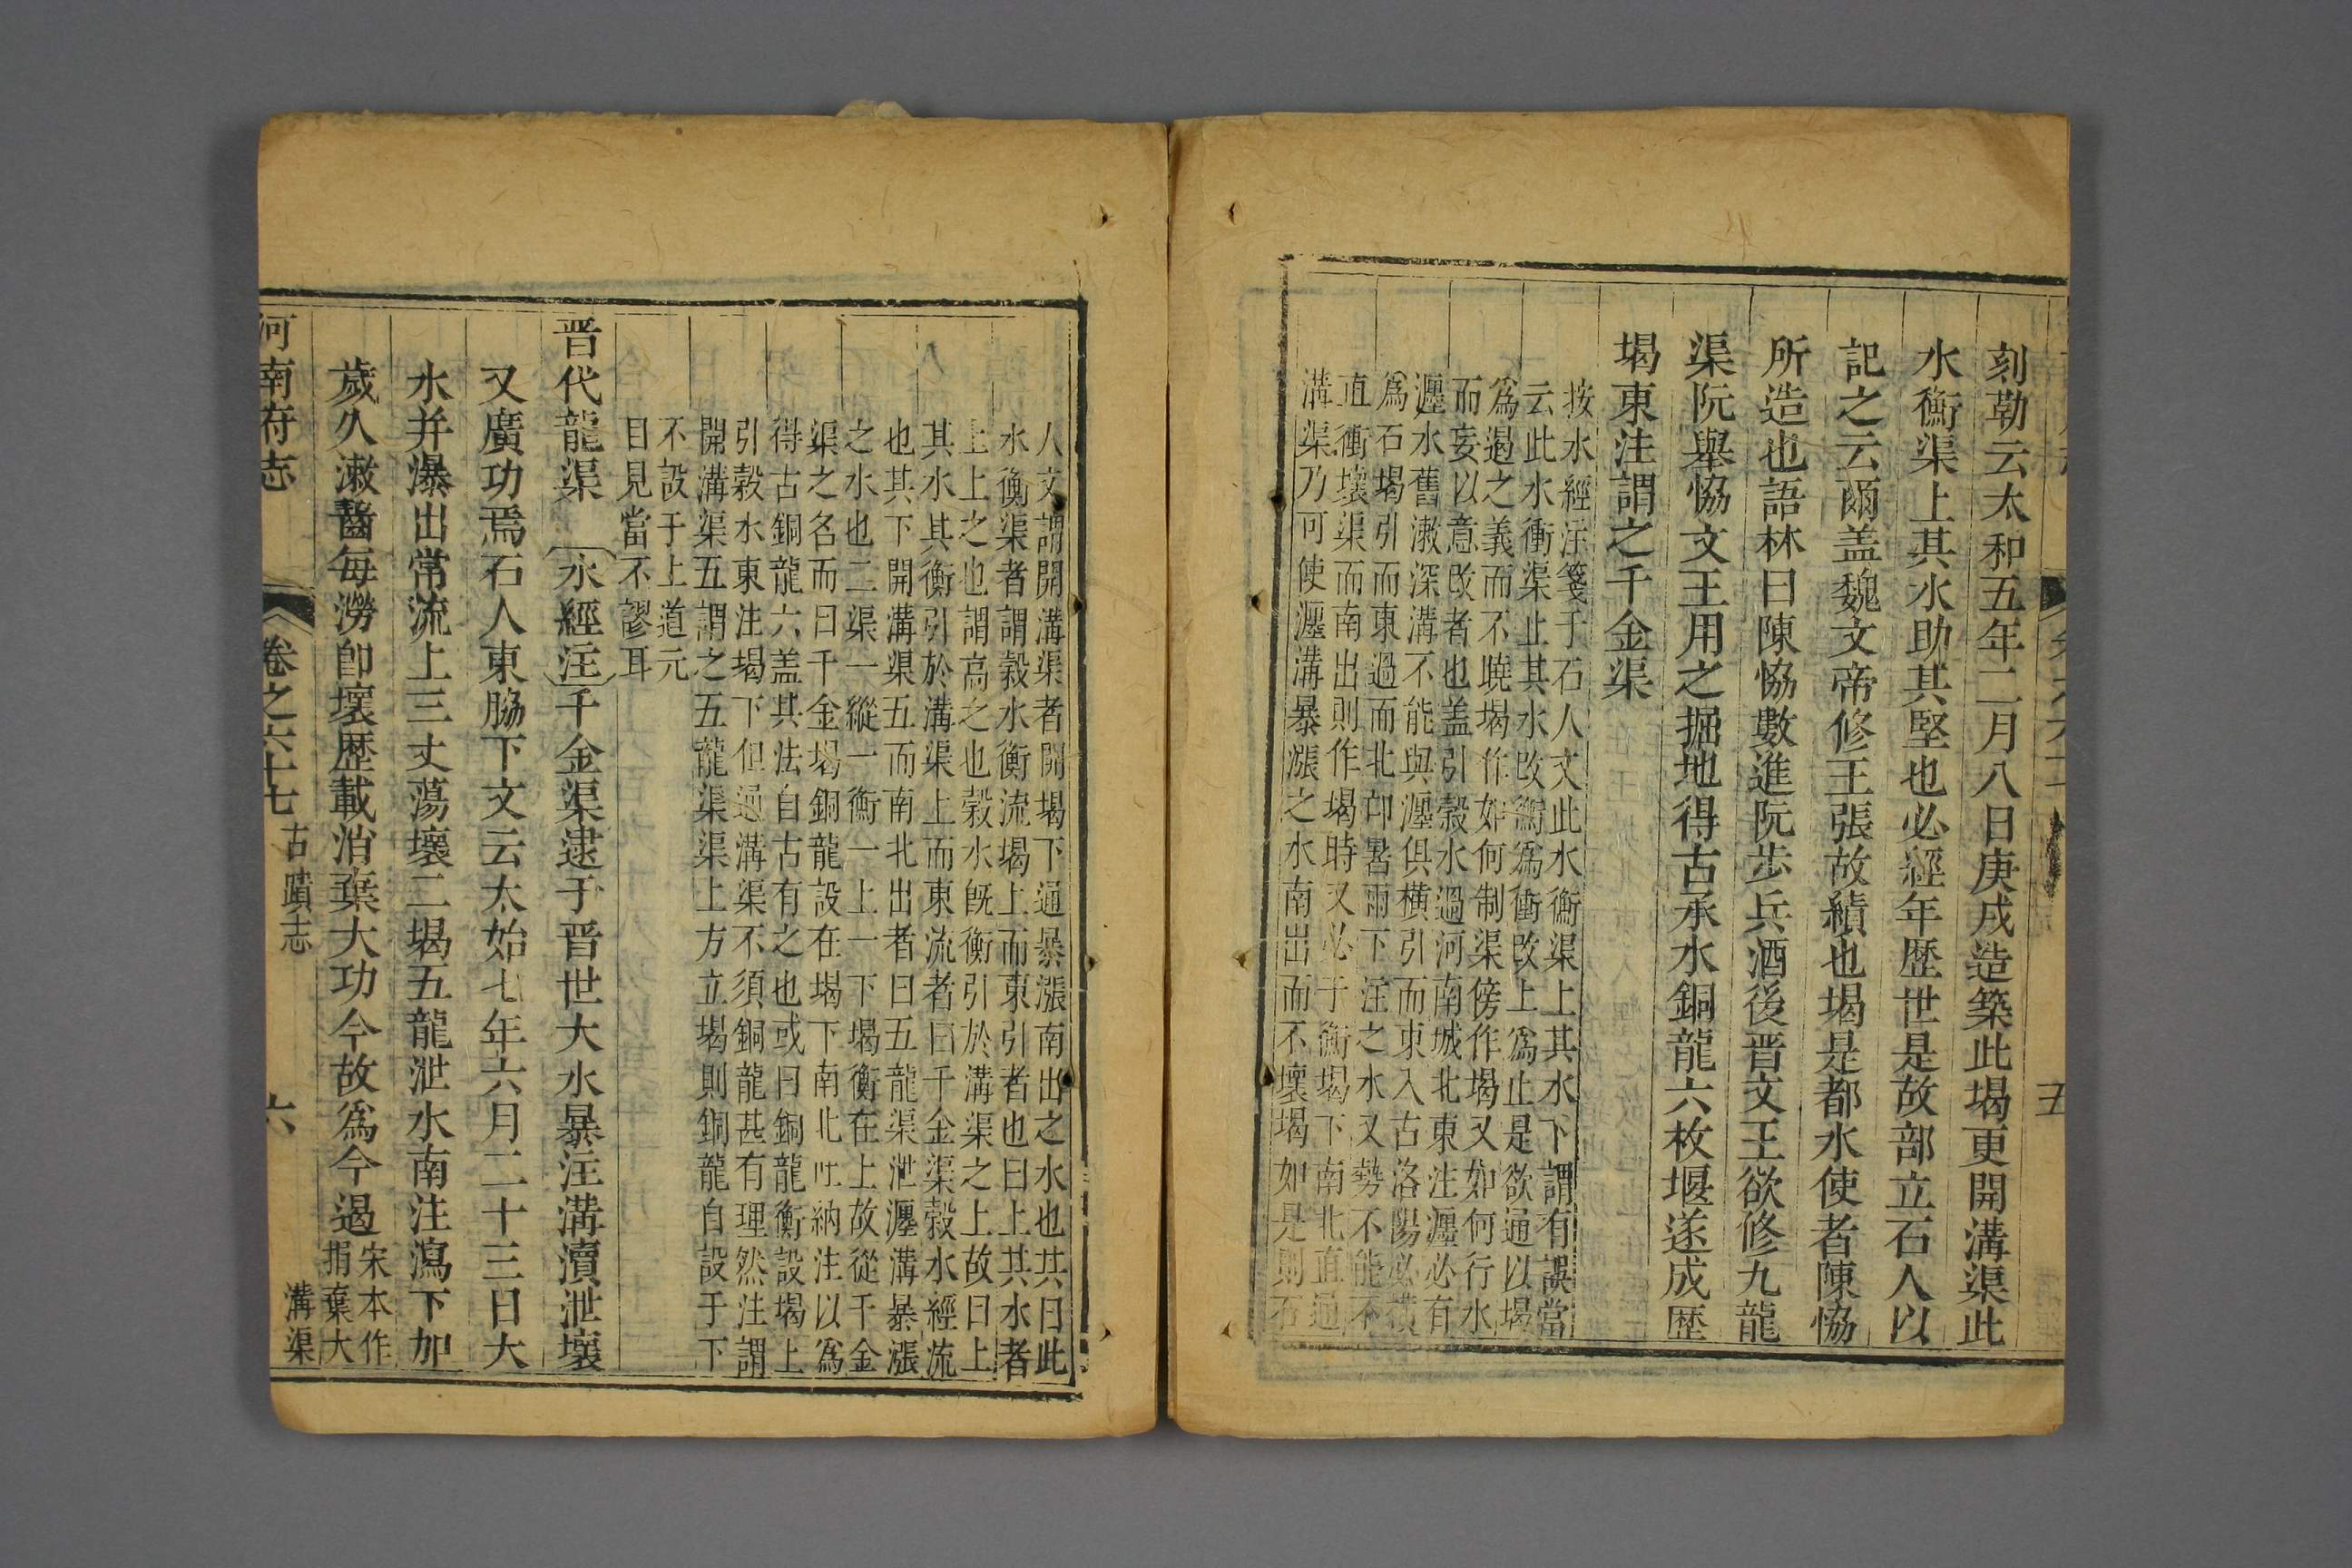 刻勒云太和五年二月八日庚戌造築此堨更開溝渠此
水衡渠上其水助其堅也必經年歴世是故部立石人以
記之云爾盖魏文帝修王張故績也堨是都水使者陳恊
所造也語林曰陳恊數進阮步兵酒後晋文王欲修九龍
渠阮舉恊文王用之掘地得古承水銅龍六枚堰遂成歴
堨東注謂之千金渠
按水經注箋于石人文此水衡渠上其水下謂有誤當
云此水衝渠止其水改衡爲衝改上爲止是欲通以堨
爲遏之義而不曉堨作如何制渠傍作堨又如何行水
而妄以意改者也盖引穀水過河南城北東注瀍必有
瀍水舊漱深溝不能與瀍俱橫引而東入古洛陽必橫
爲石堨引而東過而北卭暑雨下注之水又勢不能不
直衝壞渠而南出則作堨時又必于衡堨下南北直通
溝渠乃可使瀍溝暴漲之水南出而不壞堨如是則石
人文謂開溝渠者開堨下通暴漲南出之水也其曰此
水衡渠者謂穀水衡流堨上而東引者也曰上其水者
上上之也謂高之也穀水旣衡引於溝渠之上故曰上
其水其衡引於溝渠上而東流者曰千金渠穀水經流
也其下開溝渠五而南北出者曰五龍渠泄瀍溝暴漲
之水也二渠一縱一衡一上一下堨衡在上故從千金
渠之名而曰千金堨銅龍設在堨下南北吐納注以爲
得古銅龍六盖其法自古有之也或曰銅龍衡設堨上
引穀水東注堨下但通溝渠不須銅龍甚有理然注謂
開溝渠五謂之五龍渠渠上方立堨則銅龍自設于下
不設于上道元
目見當不謬耳
晋代龍渠　水經注千金渠逮于晋世大水暴注溝瀆泄壞
又廣功焉石人東脇下文云太始七年六月二十三日大
水并瀑出常流上三丈蕩壞二堨五龍泄水南注瀉下加
歲久漱齧每澇卽壞歴載治棄大功今故爲今遏宋本作
捐棄大
河南府志
卷之六十七
古蹟志
溝渠
六
五